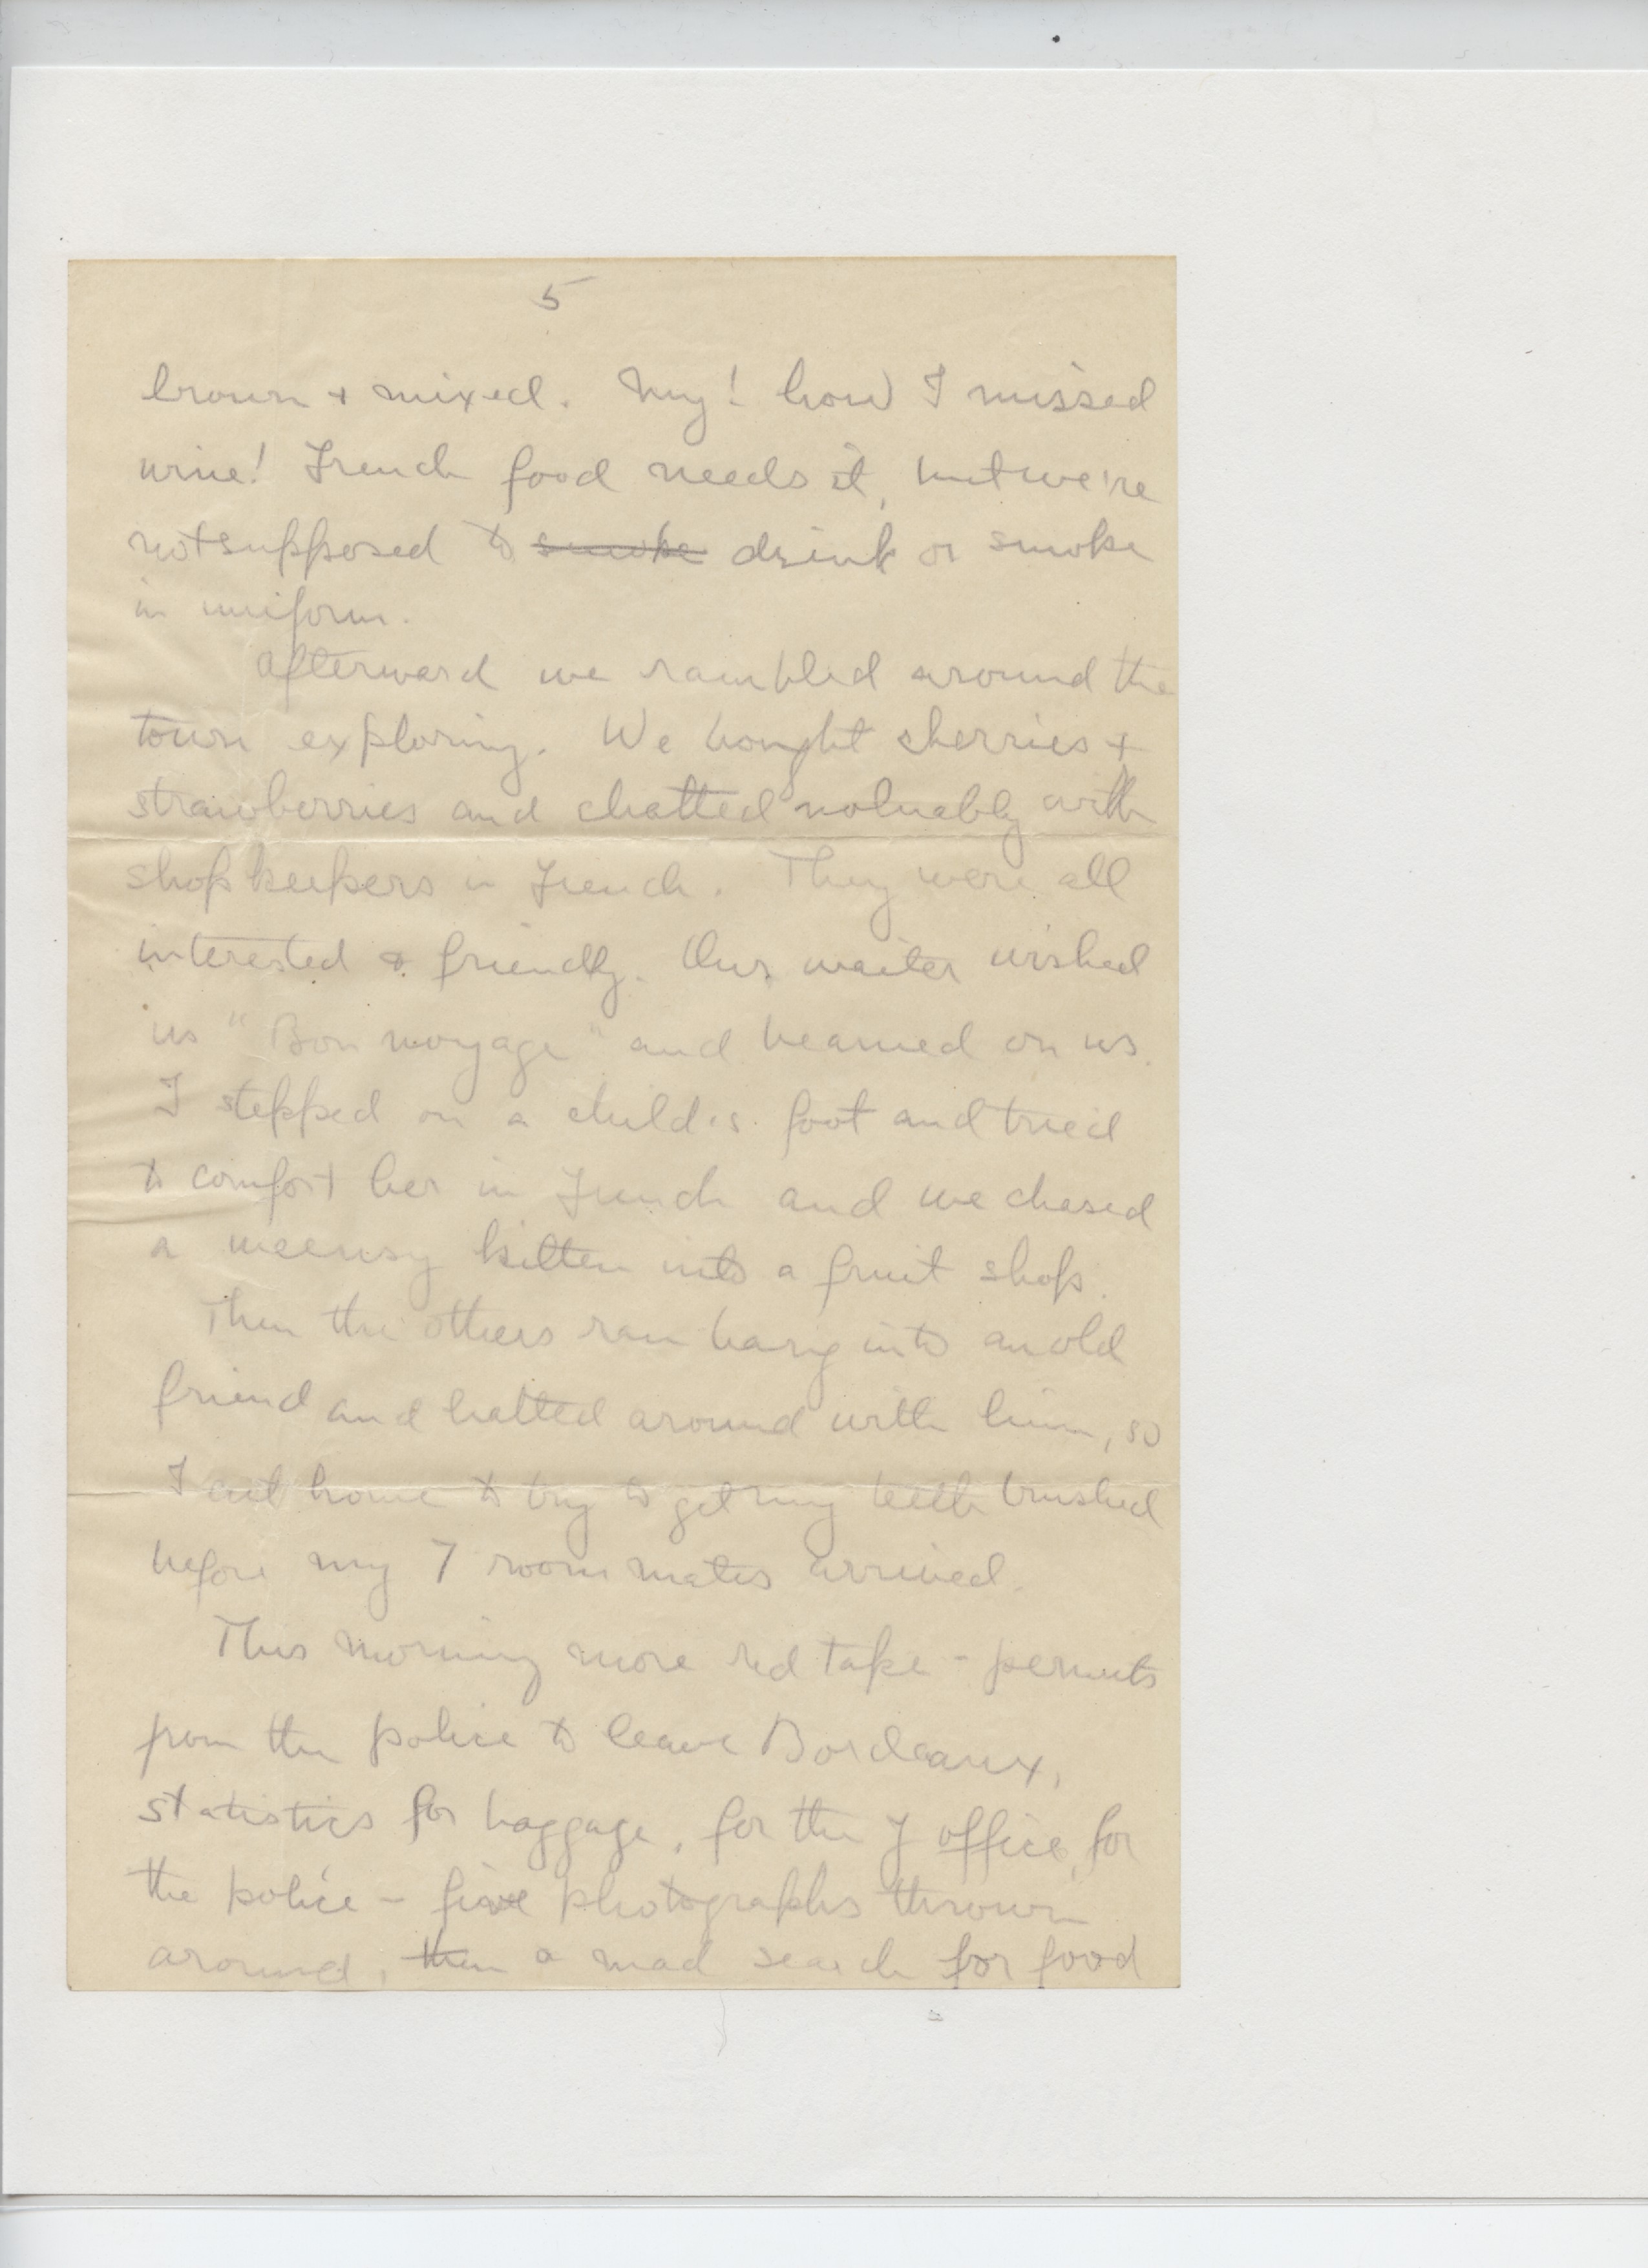 5
brown + mixed. My! how I missed
wine! French food needs it, but we're
not supposed to ~~smoke~~ drink or smoke
in uniform.
Afterward we rambled around the
town exploring. We bought cherries +
strawberries and chatted volubly with
shopkeepers in French. They were all
interested + friendly. Our waiter wished
us "Bon voyage" and beamed on us.
I stepped on a child's foot and tried
to comfort her in French and we chased
a weensy kitten into a fruit shop.
Then the others ran bang into an old
friend and batted around with him, so
I cut home to try to get my teeth brushed
before my 7 roommates arrived.
This morning more red tape - permits
from the police to leave Bordeaux,
statistics for baggage, for the Y office, for
the police - five photographs thrown
around, then a mad search for food